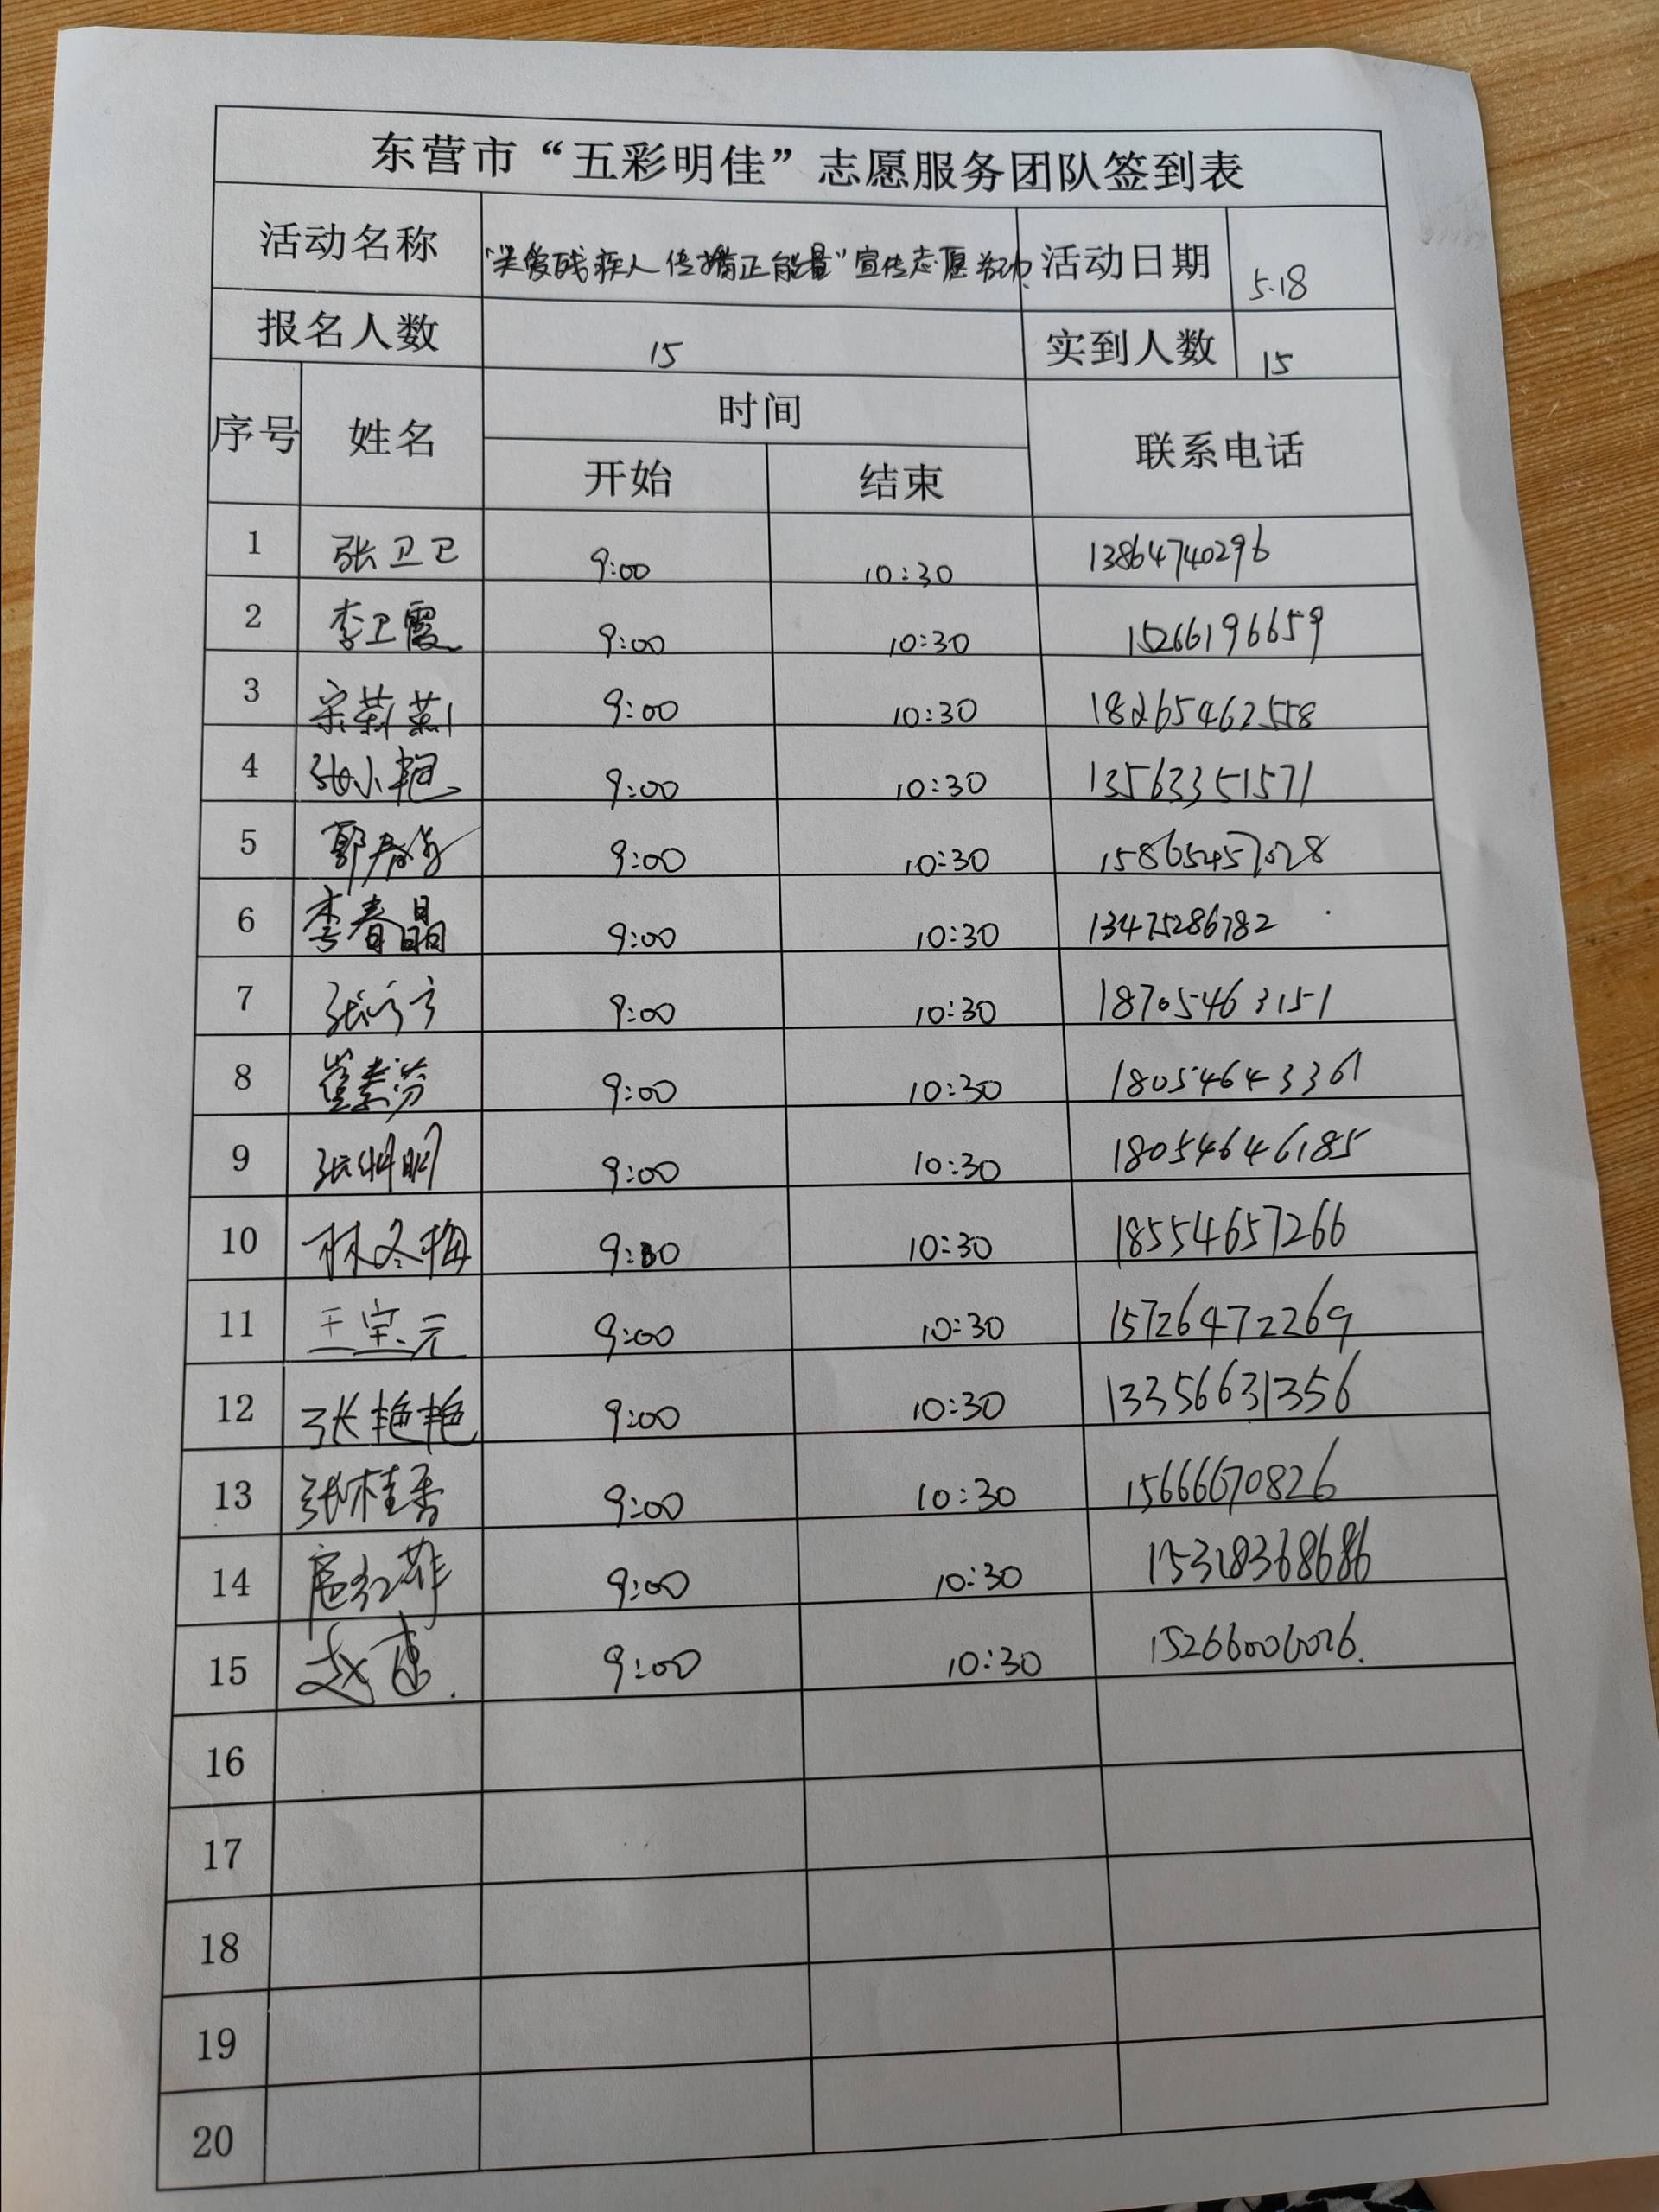 东营市“五彩明佳”志愿服务团队签到表
活动名称 “关爱残疾人 传播正能量”宣传志愿活动 活动日期 5.18
报名人数 15 实到人数 15
序号 姓名 时间 联系电话
开始 结束
1 张卫卫 9:00 10:30 13864740296
2 李卫霞 9:00 10:30 15266196659
3 宋莉莉 9:00 10:30 18265462558
4 张小艳 9:00 10:30 13563351571
5 郭春 9:00 10:30 15865457028
6 李春晶 9:00 10:30 13475286782
7 张 9:00 10:30 18705463151
8 崔素芬 9:00 10:30 18054643361
9 张明 9:00 10:30 18054646185
10 林冬梅 9:00 10:30 18554657266
11 王宝元 9:00 10:30 15726472269
12 张艳艳 9:00 10:30 13356631356
13 张桂香 9:00 10:30 15666670826
14 扈红 9:00 10:30 15318368686
15 赵 9:00 10:30 15266006026.
16
17
18
19
20